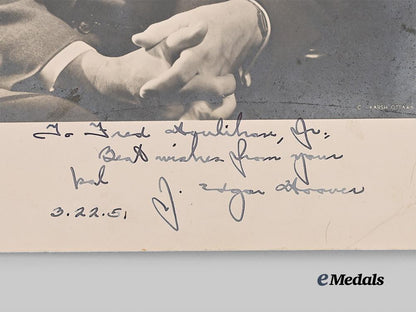 © KARSH OTTAWA
To Fred Houlihan, Jr.
Best wishes from your
pal
J. Edgar Hoover
3.22.51
eMedals